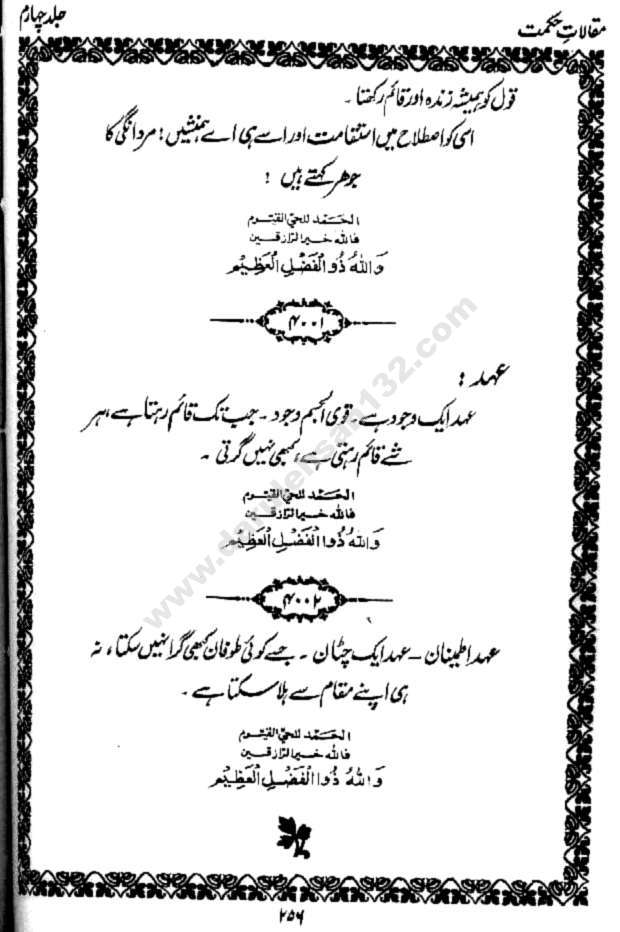 مقالاتِ حکمت
جلد چہارم
قول کو ہمیشہ زندہ اور قائم رکھنا ۔
اسی کو اصطلاح میں استقامت اور اسے ہی اے ہمنشیں! مردانگی کا
جوھر کہتے ہیں !
الحَمد للحیّ القیّوم
فاللہ خیر الرازقین
وَاللہُ ذُو الْفَضْلِ الْعَظِیْم
۴۰۰۱
عہد :
عہد ایک وجود ہے ۔ قوی الجسم وجود ۔ جب تک قائم رہتا ہے، ہر
شے قائم رہتی ہے، کبھی نہیں گرتی ۔
الحَمد للحیّ القیّوم
فاللہ خیر الرازقین
وَاللہُ ذُوا الْفَضْلِ الْعَظِیْم
۴۰۰۲
عہد اطمینان – عہد ایک چٹان ۔ جسے کوئی طوفان کبھی گرا نہیں سکتا ، نہ
ہی اپنے مقام سے ہلا سکتا ہے ۔
الحَمد للحیّ القیّوم
فاللہ خیر الرازقین
وَاللہُ ذُوا الْفَضْلِ الْعَظِیْم
۲۵۶